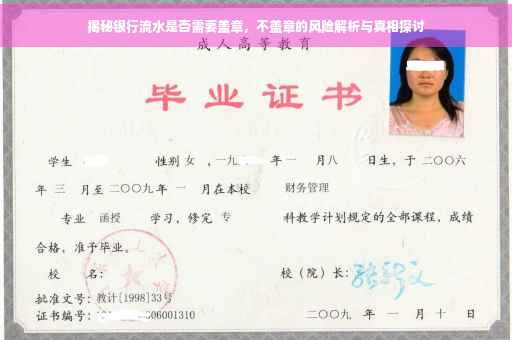 揭秘银行流水是否需要盖章，不盖章的风险解析与真相探讨
成人高等教育
毕业证书
学生 性别 女 ，一九 年 一 月八 日生，于 二〇〇六
年 三 月至 二〇〇九 年 一 月在本校 财务管理
专业 函授 学习，修完 专 科教学计划规定的全部课程，成绩
合格，准予毕业。
校 名： 校（院）长：
批准文号：教计[1998]33号
证书编号： 06001310 二〇〇九 年 一 月 十 日